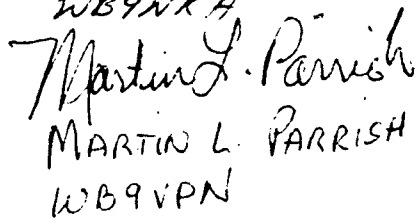 WB9NKA
Martin L. Parrish
MARTIN L. PARRISH
WB9VPN